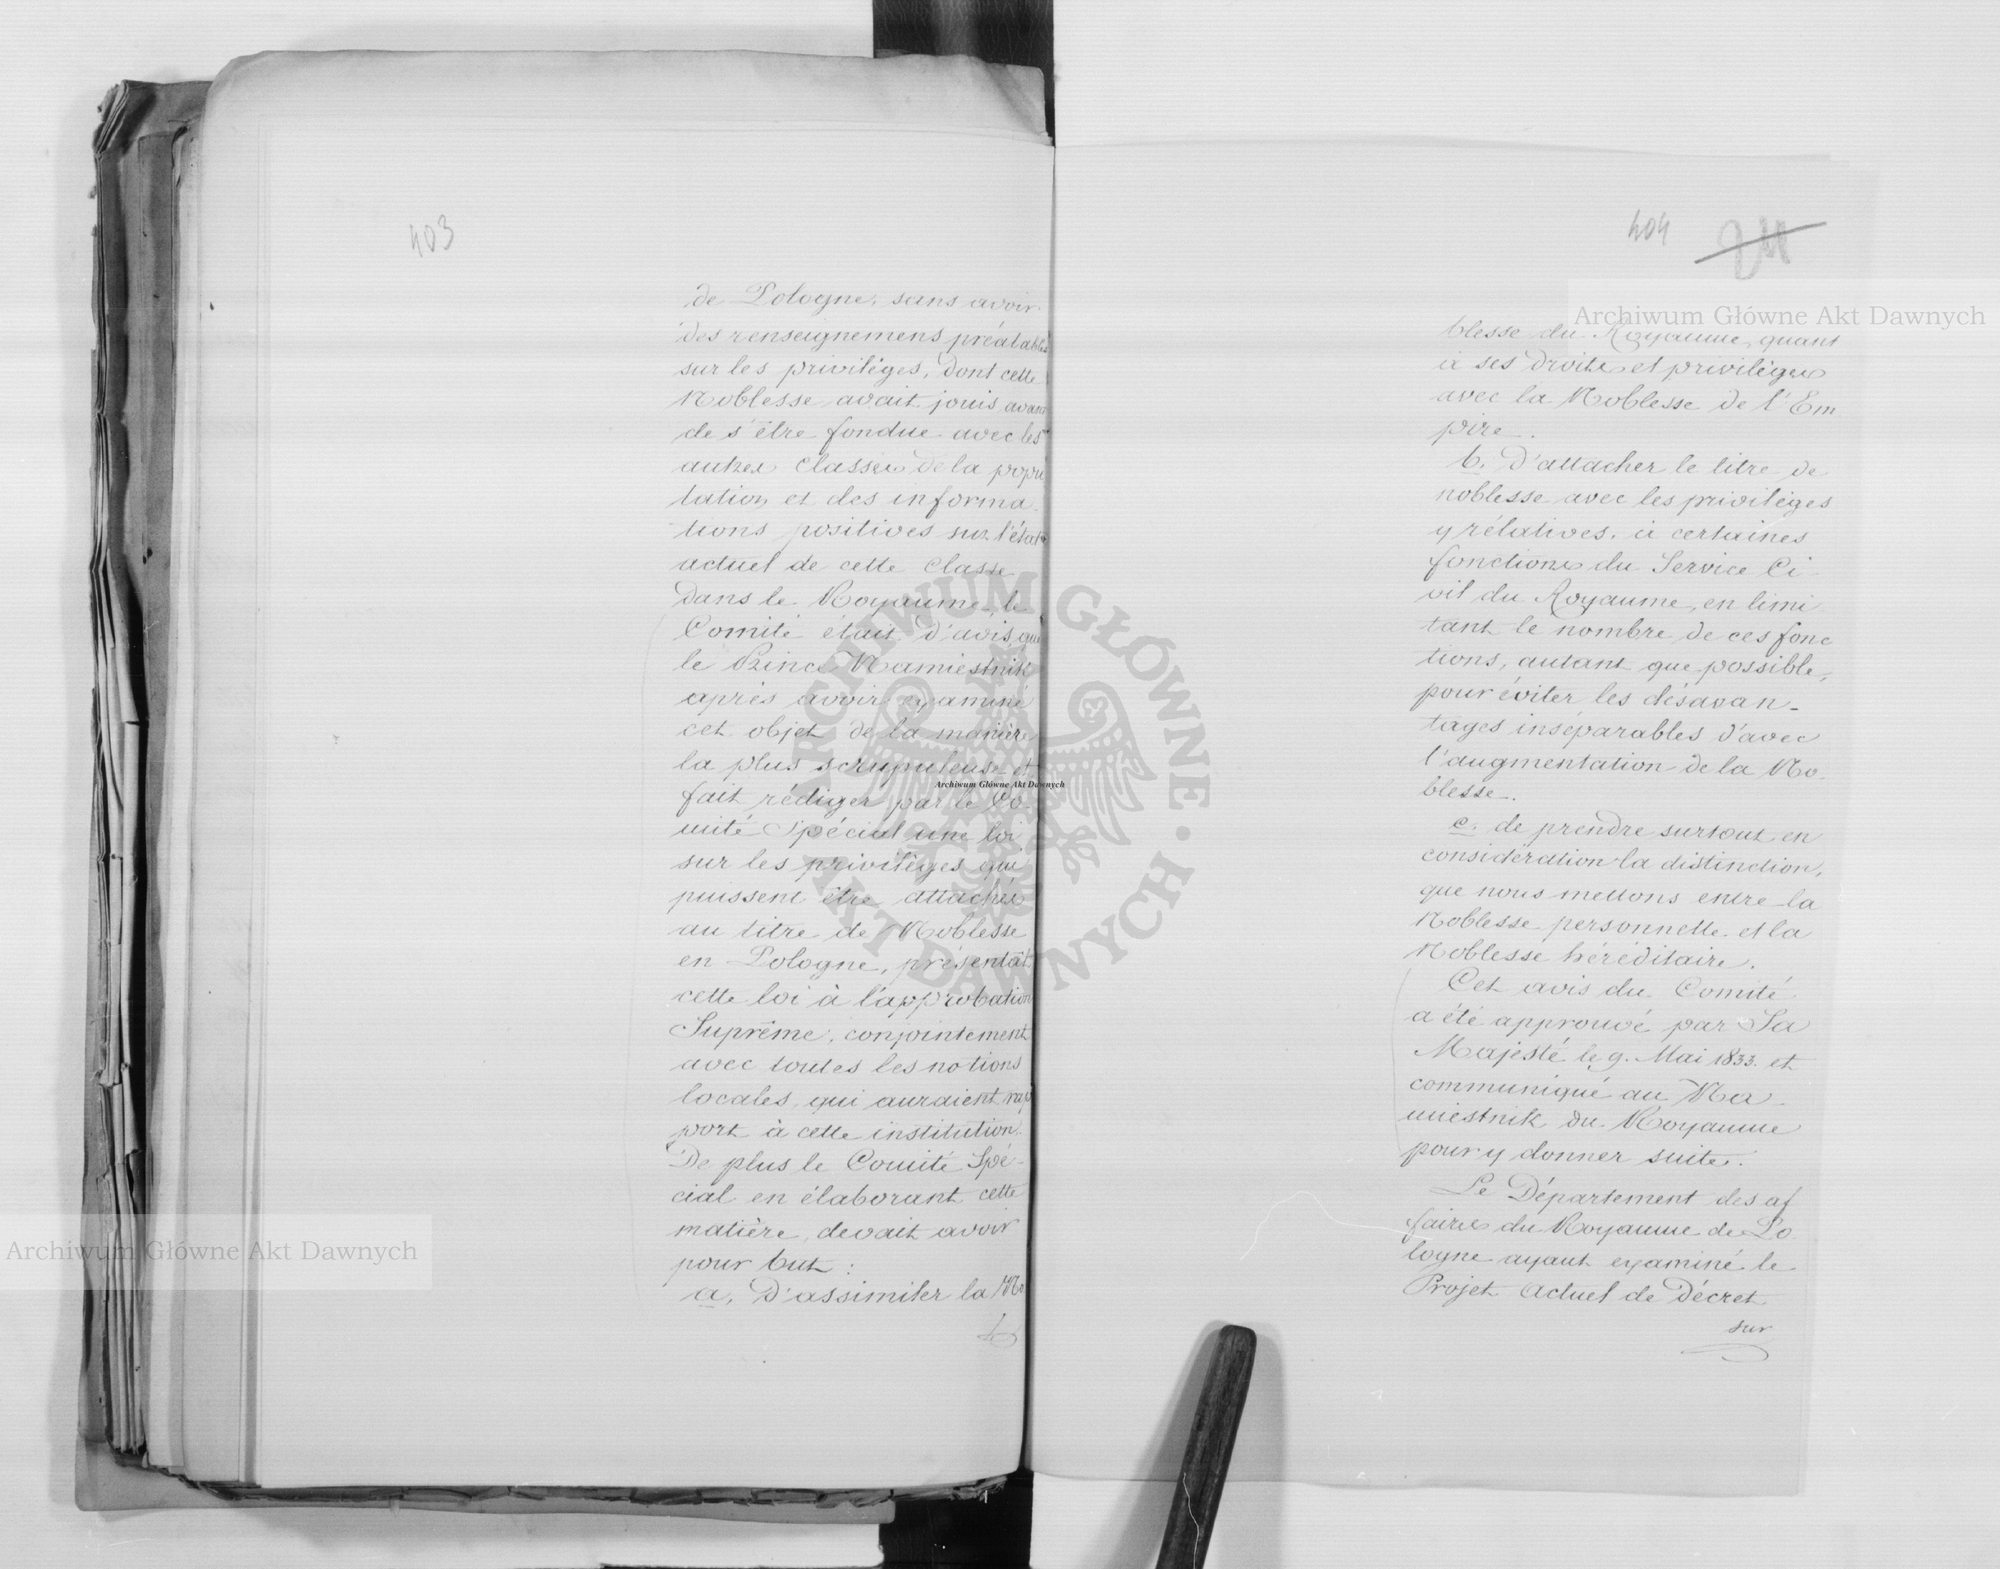 403
de Pologne, sans avoir
des renseignemens préalables
sur les privilèges, dont cette
Noblesse avait jouis avant
de s'être fondue avec les
autres classes de la popu
lation et des informa-
tions positives sur l'état
actuel de cette classe
dans le Royaume, le
Comité était d'avis que
le Prince Namiestnik
après avoir examiné
cet objet de la manière
la plus scrupuleuse et
fait rédiger par le Co-
mité Spécial une loi
sur les privilèges qui
puissent être attachés
au titre de Noblesse
en Pologne, présentât
cette loi à l'approbation
Suprême, conjointement
avec toutes les notions
locales qui auraient rap
port à cette institution.
De plus le Comité Spé-
cial en élaborant cette
matière, devait avoir
pour but :
a, D'assimiler la No
404
211
blesse du Royaume, quant
à ses droits et privilèges
avec la Noblesse de l'Em
pire.
b. D'attacher le titre de
noblesse avec les privilèges
y rélatives, à certaines
fonctions du Service Ci-
vil du Royaume, en limi
tant le nombre de ces fonc
tions, autant que possible,
pour éviter les désavan-
tages inséparables d'avec
l'augmentation de la No-
blesse.
c. de prendre surtout en
considération la distinction,
que nous mettons entre la
Noblesse personnelle et la
Noblesse héréditaire.
Cet avis du Comité
a été approuvé par Sa
Majesté le 9. Mai 1833. et
communiqué au Na-
miestnik du Royaume
pour y donner suite.
Le Département des af
faires du Royaume de Po
logne ayant examiné le
Projet actuel de Décret
sur
Archiwum Główne Akt Dawnych
Archiwum Główne Akt Dawnych
Archiwum Główne Akt Dawnych
ARCHIWUM GŁÓWNE • AKT DAWNYCH •